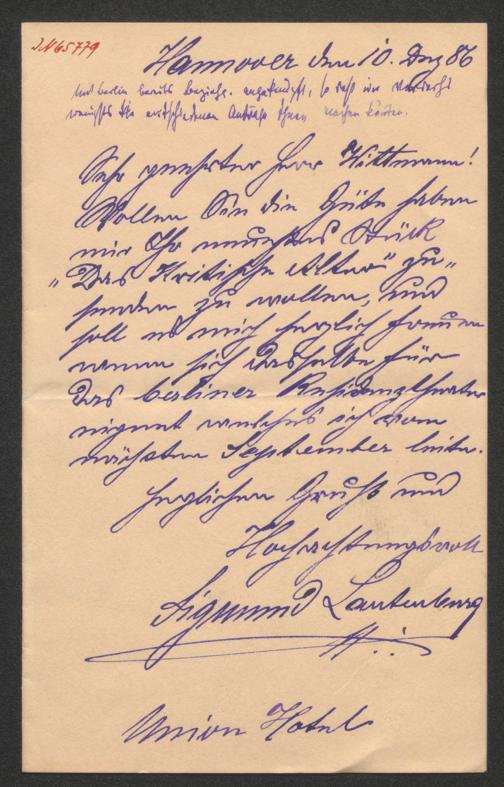 J.N 65779
Hannover den 10. Dez 86
Mit Berlin bereits angeknüpft, so daß ich
Ihnen machen könnte.
Sehr geehrter Herr Wittmann!
Wollen Sie die Güte haben
mir Ihr neuestes Stück
„Das Kritische Alter" zu„
senden zu wollen, und
soll es mich herzlich freuen
wenn sich dasselbe für
das berliner Residenztheater
eignet welches ich vom
nächsten September leite.
Herzlichen Gruß und
Hochachtungsvoll
Sigmund Lautenburg
Union Hotel